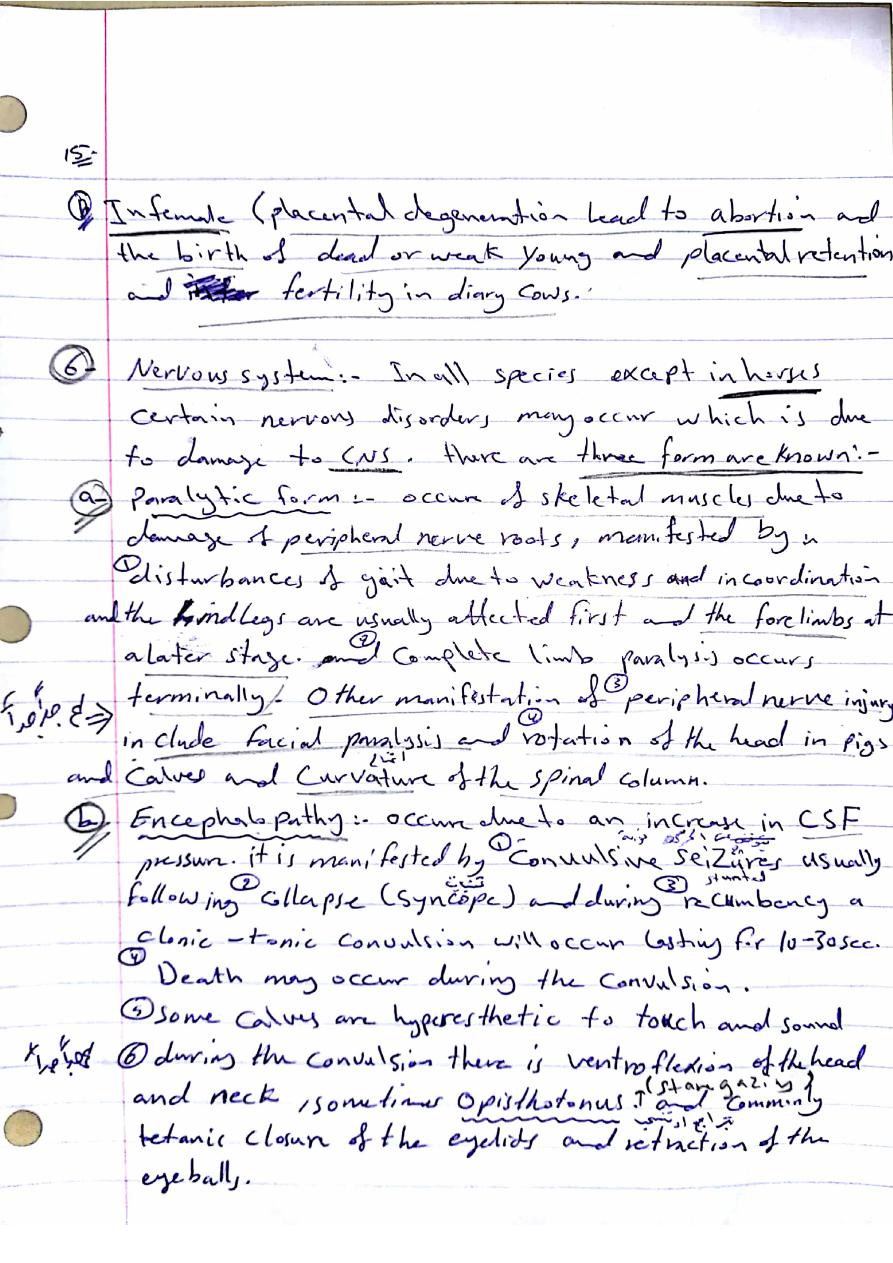 15-
(B) In female (placental degeneration lead to abortion and
the birth of dead or weak young and placental retention
and fertility in diary cows.
6- Nervous system:- In all species except in horses
certain nervous disorders may occur which is due
to damage to CNS. there are three form are known:-
a- Paralytic form:- occure of skeletal muscles due to
damage of peripheral nerve roots, manifested by
① disturbances of gait due to weakness and incoordination
and the hindlegs are usually affected first and the forelimbs at
a later stage. ② and complete limb paralysis occurs
terminally. Other manifestation of ③ peripheral nerve injury
include facial paralysis and ④ rotation of the head in pigs
and calves and curvature of the spinal column.
b- Encephalopathy:- occure due to an increase in CSF
pressure. it is manifested by ① Convulsive seizures usually
following ② collapse (syncope) and during ③ recumbency a
clonic-tonic convulsion will occur lasting for 10-30sec.
④ Death may occur during the convulsion.
⑤ some calves are hyperesthetic to touch and sound
⑥ during the convulsion there is ventroflexion of the head
and neck, sometimes opisthotonus (stare gazing) and comminly
tetanic closure of the eyelids and retraction of the
eyeballs.